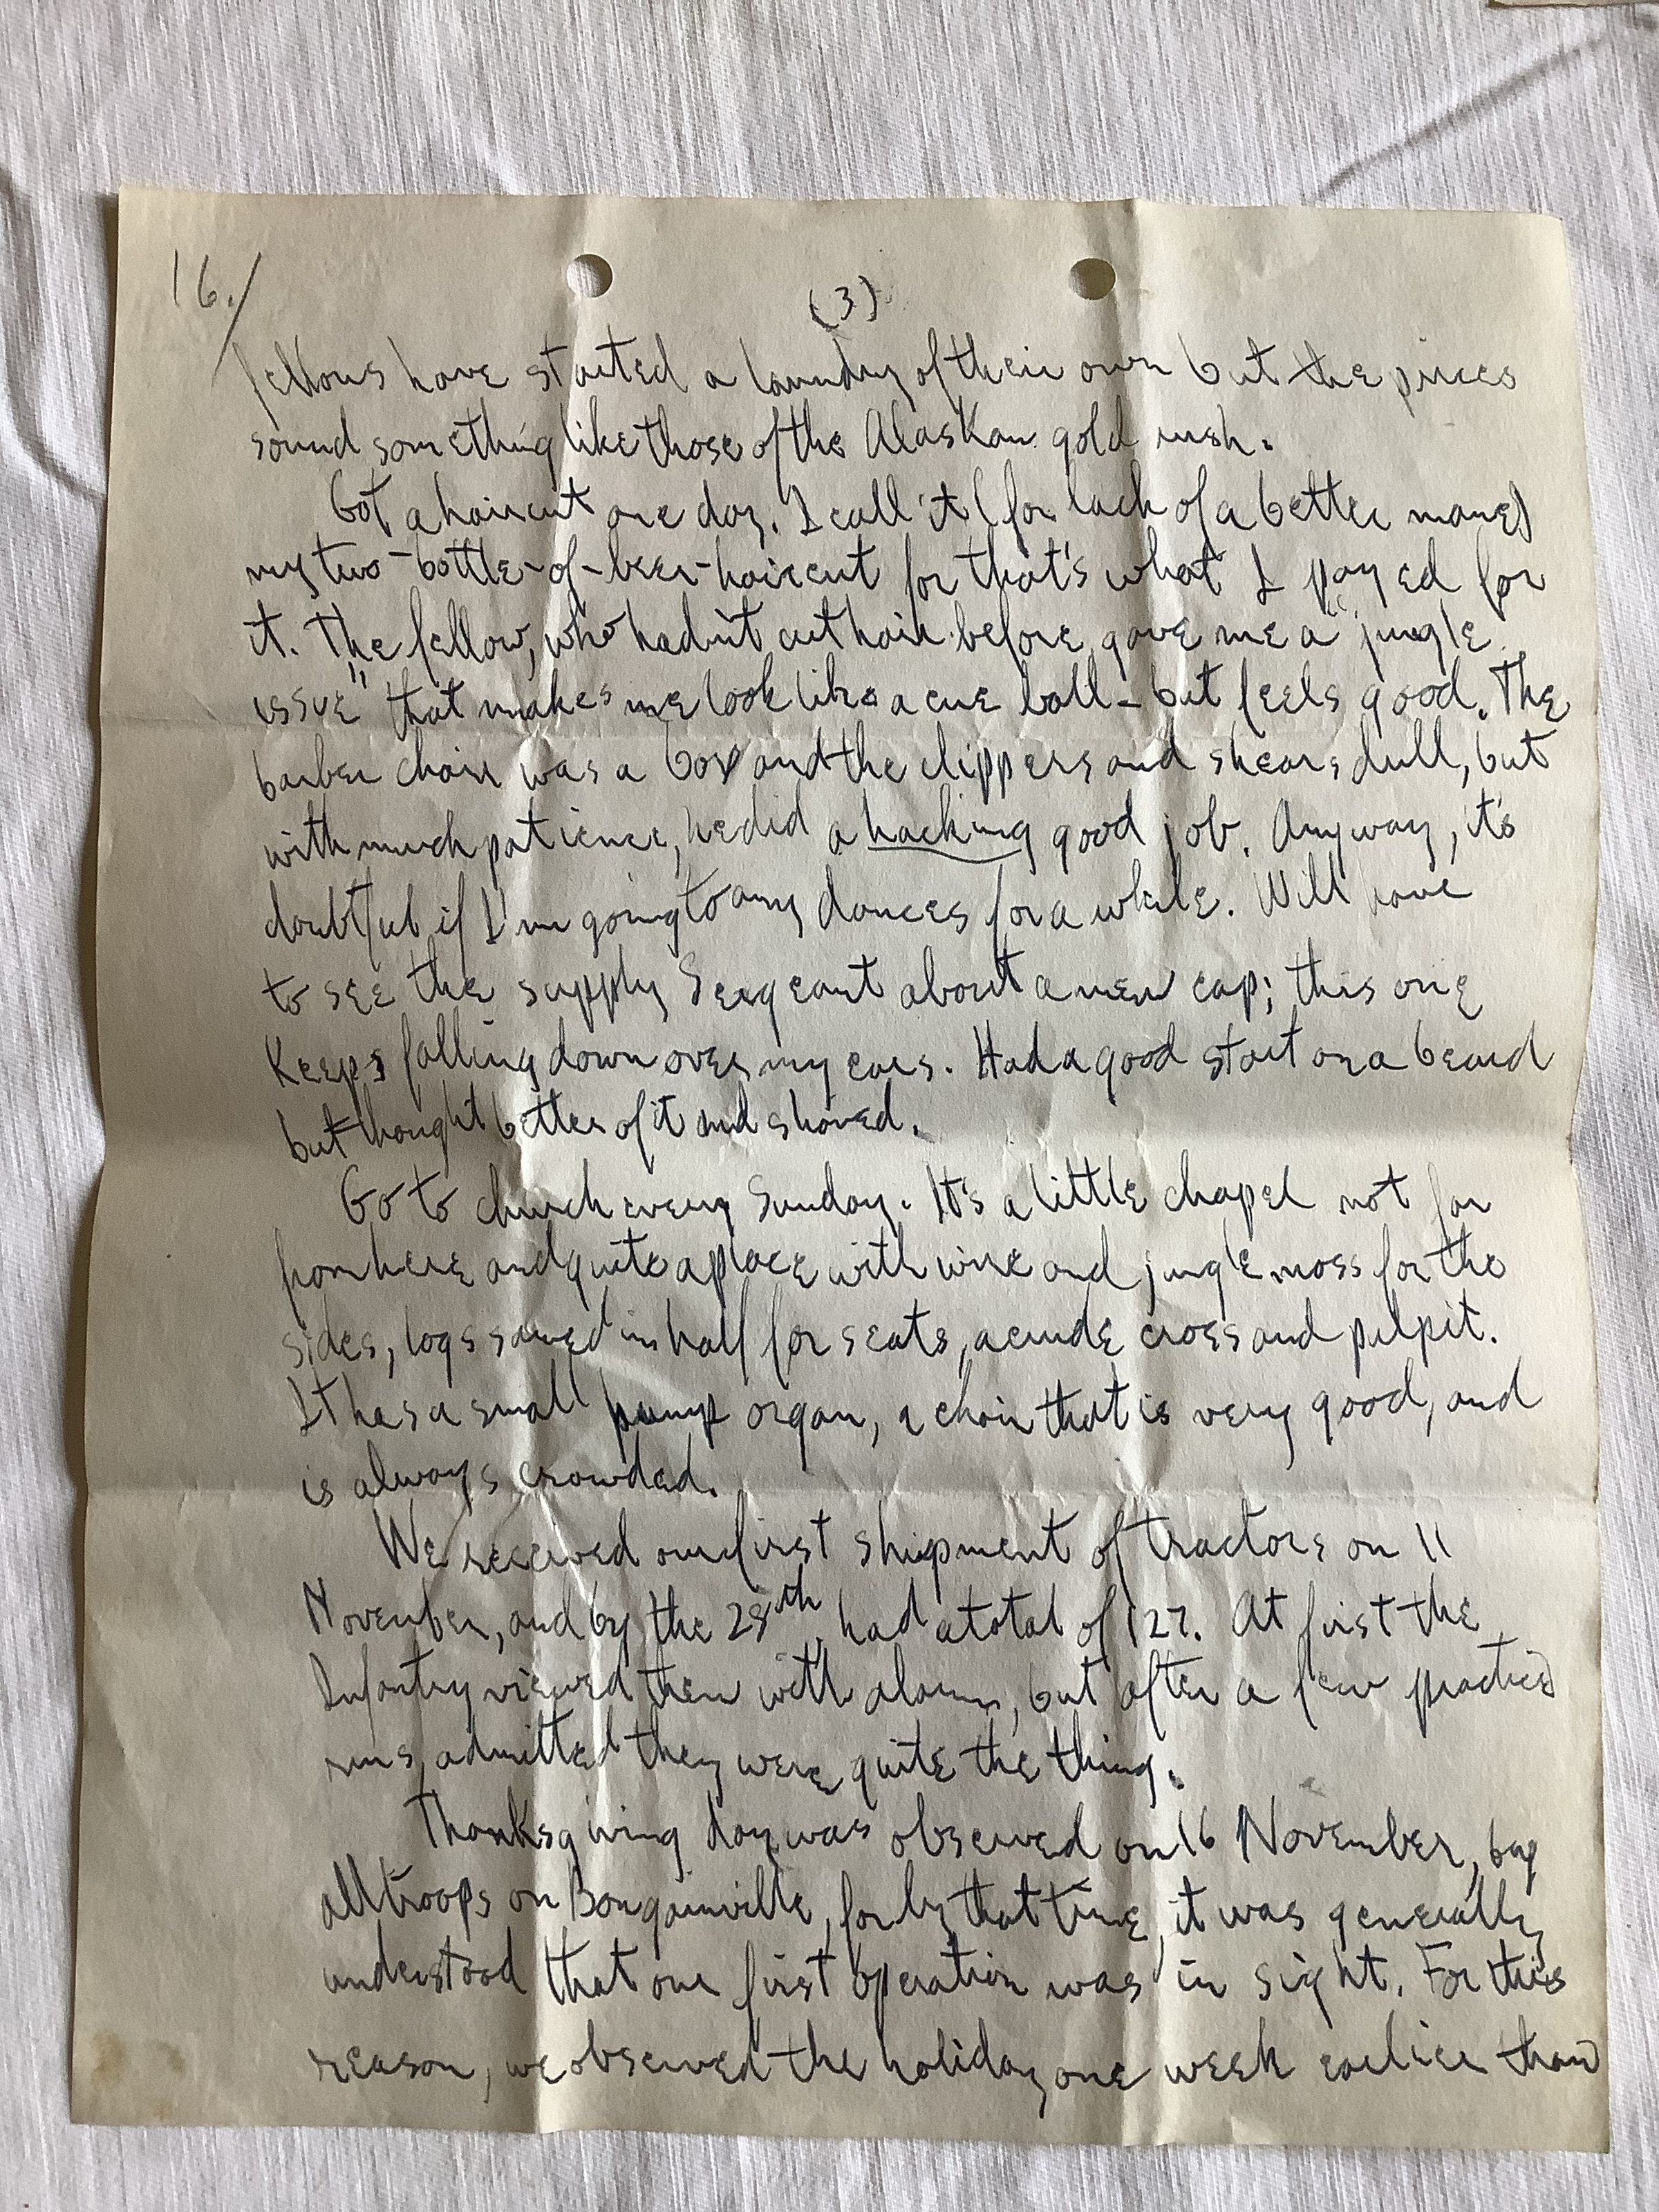 16./
(3)
fellows have started a laundry of their own but the prices
sound something like those of the Alaskan gold rush.
Got a haircut one day. I call it (for lack of a better name)
my two-bottle-of-beer-haircut for that's what I payed for
it. The fellow, who hadn't cut hair before, gave me a "jungle
issue" that makes me look like a cue ball - but feels good. The
barber chair was a box and the clippers and shears dull, but
with much patience, he did a hacking good job. Anyway, it's
doubtful if I'm going to any dances for a while. Will have
to see the supply Sergeant about a new cap; this one
Keeps falling down over my ears. Had a good start on a beard
but thought better of it and shaved.
Go to church every Sunday. It's a little chapel not far
from here and quite a place with wire and jungle moss for the
sides, logs sawed in half for seats, a crude cross and pulpit.
It has a small pump organ, a choir that is very good, and
is always crowded.
We received our first shipment of tractors on 11
November, and by the 28th had a total of 127. At first the
Infantry viewed them with alarm, but after a few practice
runs, admitted they were quite the thing.
Thanksgiving day was observed on 16 November, by
all troops on Bougainville, for by that time, it was generally
understood that our first operation was in sight. For this
reason, we observed the holiday one week earlier than